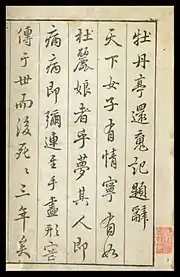 牡丹亭還䰟記題辭
天下女子有情寧有如
杜麗娘者乎夢其人即
病病即彌連至手畫形容
傳于世而後死〻三年矣